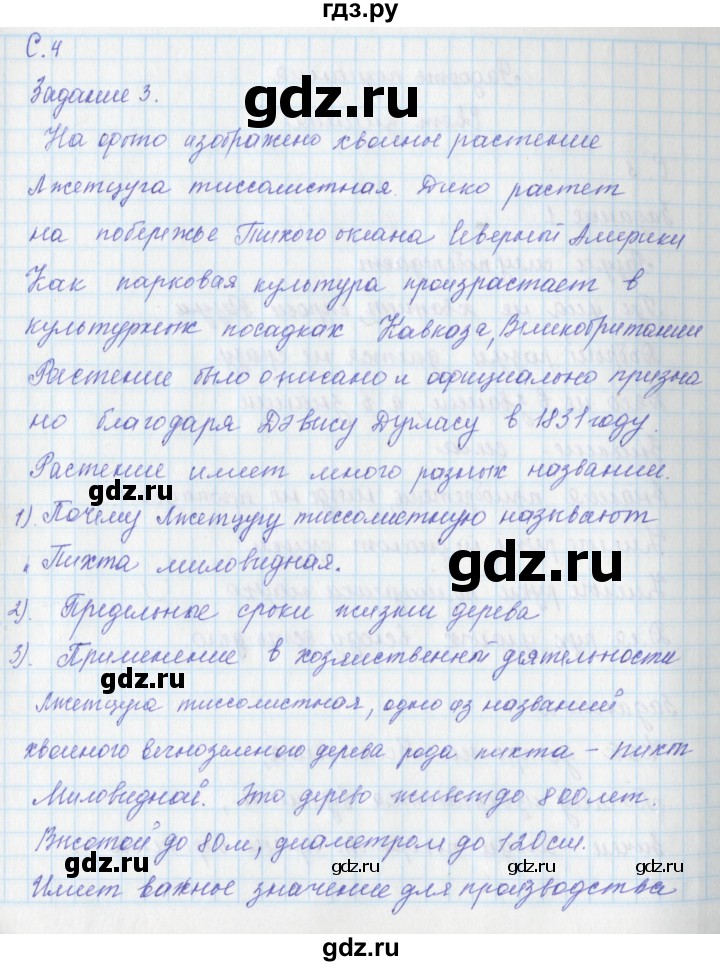 гдз.ру
С.4
Задание 3.
gdz.ru
На фото изображено хвойные растение
Лжетцуга тиссолистная. Дико растет
на побережье Тихого океана Северной Америки
Как парковая культура произрастает в
культурных посадках Кавказа, Великобритании
gdz.ru
Растение было описано и официально призна
но благодаря Дэвису Дугласу в 1831 году.
Растение имеет много разных названий.
gdz.ru
1). Почему Лжетцугу тиссолистную называют
Пихта миловидная.
gdz.ru
2). Предельные сроки жизни дерева
3). Применение в хозяйственной деятельности
gdz.ru
Лжетцуга тиссолистная, одно из названий
хвойного вечнозеленого дерева рода пихта – Пихт
Миловидной. Это дерево живет до 800 лет.
Высотой до 80м, диаметром до 120см.
gdz.ru
gdz.ru
gdz.ru
Имеет важное значение для производства
gdz.ru
gdz.ru
gdz.ru